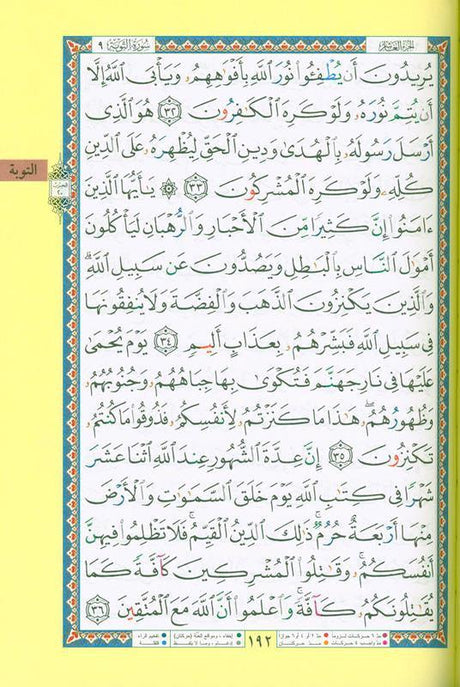 سُورَةُ التَّوْبَةِ ٩
الجزء العاشر
يُرِيدُونَ أَن يُطْفِـُٔوا۟ نُورَ ٱللَّهِ بِأَفْوَٰهِهِمْ وَيَأْبَى ٱللَّهُ إِلَّآ
أَن يُتِمَّ نُورَهُۥ وَلَوْ كَرِهَ ٱلْكَٰفِرُونَ ٣٢ هُوَ ٱلَّذِىٓ
أَرْسَلَ رَسُولَهُۥ بِٱلْهُدَىٰ وَدِينِ ٱلْحَقِّ لِيُظْهِرَهُۥ عَلَى ٱلدِّينِ
كُلِّهِۦ وَلَوْ كَرِهَ ٱلْمُشْرِكُونَ ٣٣ ۞ يَٰٓأَيُّهَا ٱلَّذِينَ
ءَامَنُوٓا۟ إِنَّ كَثِيرًا مِّنَ ٱلْأَحْبَارِ وَٱلرُّهْبَانِ لَيَأْكُلُونَ
أَمْوَٰلَ ٱلنَّاسِ بِٱلْبَٰطِلِ وَيَصُدُّونَ عَن سَبِيلِ ٱللَّهِ ۗ
وَٱلَّذِينَ يَكْنِزُونَ ٱلذَّهَبَ وَٱلْفِضَّةَ وَلَا يُنفِقُونَهَا
فِى سَبِيلِ ٱللَّهِ فَبَشِّرْهُم بِعَذَابٍ أَلِيمٍ ٣٤ يَوْمَ يُحْمَىٰ
عَلَيْهَا فِى نَارِ جَهَنَّمَ فَتُكْوَىٰ بِهَا جِبَاهُهُمْ وَجُنُوبُهُمْ
وَظُهُورُهُمْ ۖ هَٰذَا مَا كَنَزْتُمْ لِأَنفُسِكُمْ فَذُوقُوا۟ مَا كُنتُمْ
تَكْنِزُونَ ٣٥ إِنَّ عِدَّةَ ٱلشُّهُورِ عِندَ ٱللَّهِ ٱثْنَا عَشَرَ
شَهْرًا فِى كِتَٰبِ ٱللَّهِ يَوْمَ خَلَقَ ٱلسَّمَٰوَٰتِ وَٱلْأَرْضَ
مِنْهَآ أَرْبَعَةٌ حُرُمٌ ۚ ذَٰلِكَ ٱلدِّينُ ٱلْقَيِّمُ ۚ فَلَا تَظْلِمُوا۟ فِيهِنَّ
أَنفُسَكُمْ ۚ وَقَٰتِلُوا۟ ٱلْمُشْرِكِينَ كَآفَّةً كَمَا
يُقَٰتِلُونَكُمْ كَآفَّةً ۚ وَٱعْلَمُوٓا۟ أَنَّ ٱللَّهَ مَعَ ٱلْمُتَّقِينَ ٣٦
التوبة
١٩٢